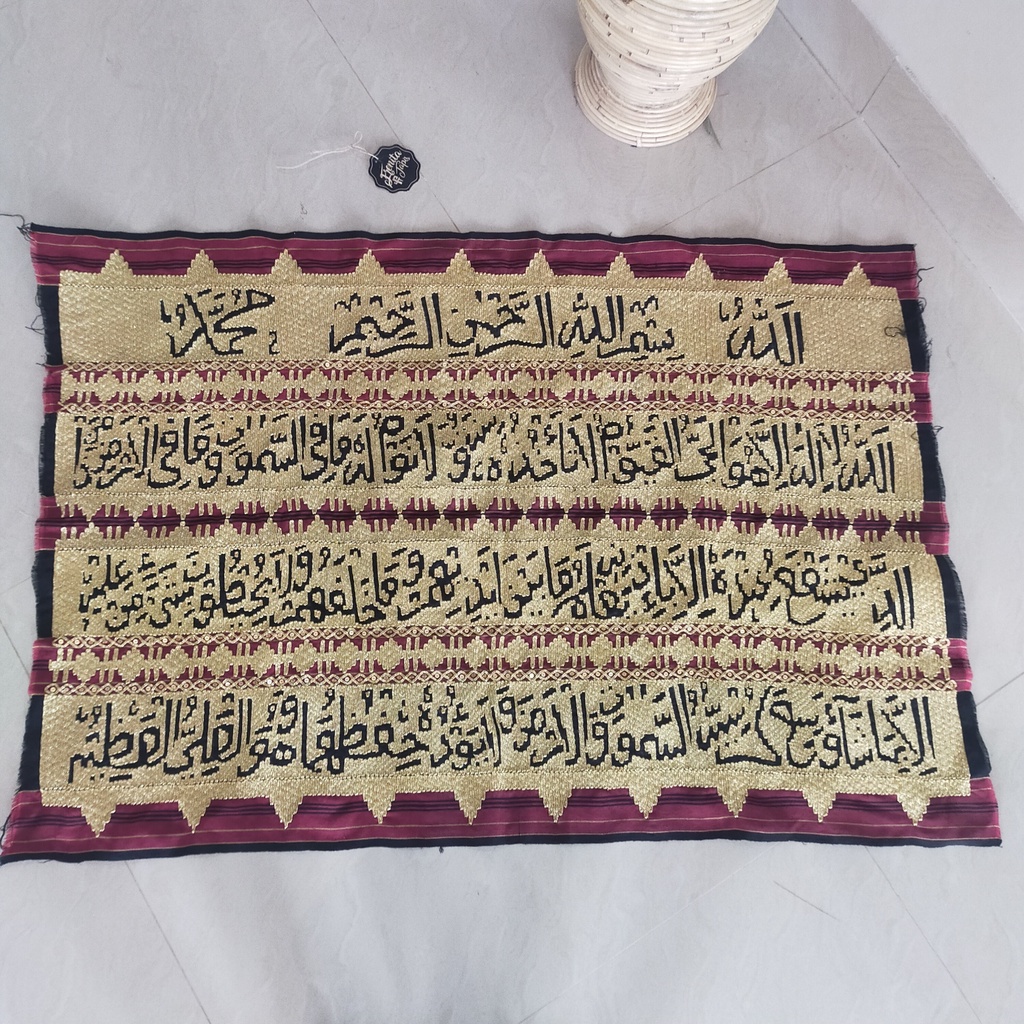 الله بسم الله الرحمن الرحيم محمد
الله لا اله الا هو الحي القيوم لا تأخذه سنة ولا نوم له ما في السموت وما في الارض من ذا
الذي يشفع عنده الا باذنه يعلم ما بين ايديهم وما خلفهم ولا يحيطون بشيء من علمه
الا بما شاء وسع كرسيه السموت والارض ولا يئوده حفظهما وهو العلي العظيم